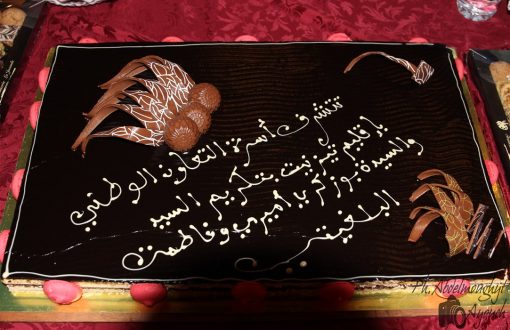 تتشرف أسرة التعاون الوطني
بإقليم تيزنيت بتكريم السيد
والسيدة بوزكري أميري وفاطمة
البلغيتي
Ph. Abdelmonghit